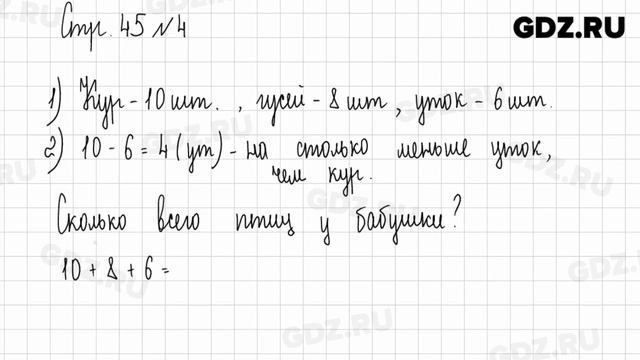 Стр. 45 №4
GDZ.RU
1) Кур - 10 шт. , гусей - 8 шт , уток - 6 шт.
2) 10 - 6 = 4 (ут) - на столько меньше уток,
чем кур.
Сколько всего птиц у бабушки?
10 + 8 + 6 =